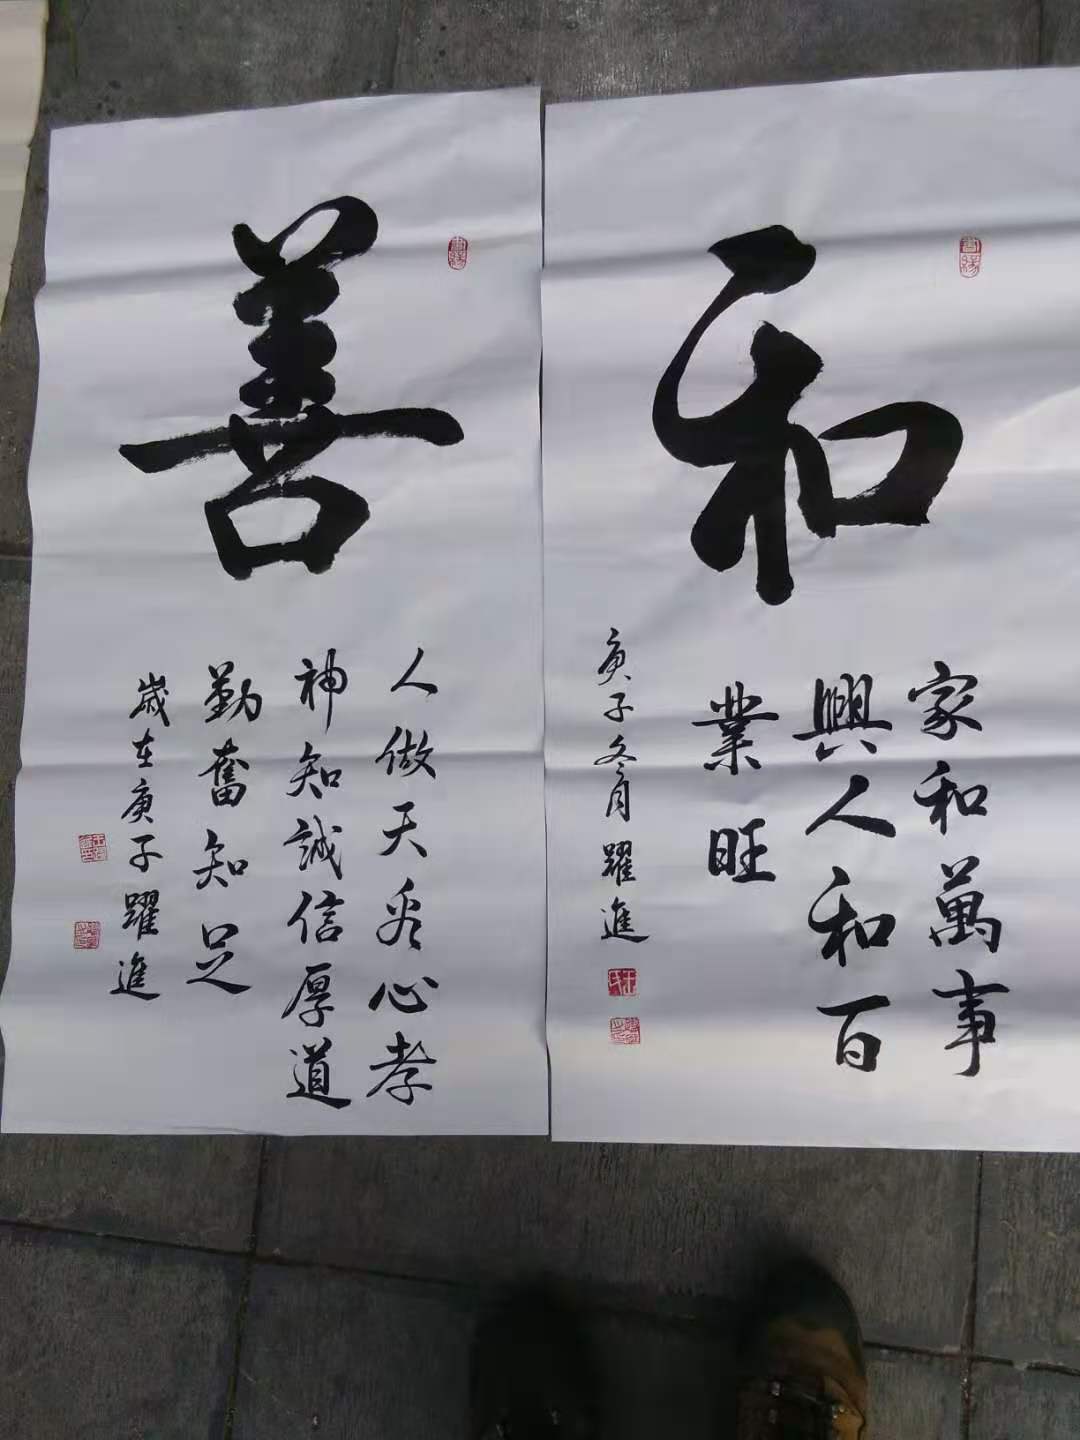 和
家和萬事
興人和百
業旺
庚子冬月躍進
善
人做天看心孝
神知誠信厚道
勤奮知足
歲在庚子躍進